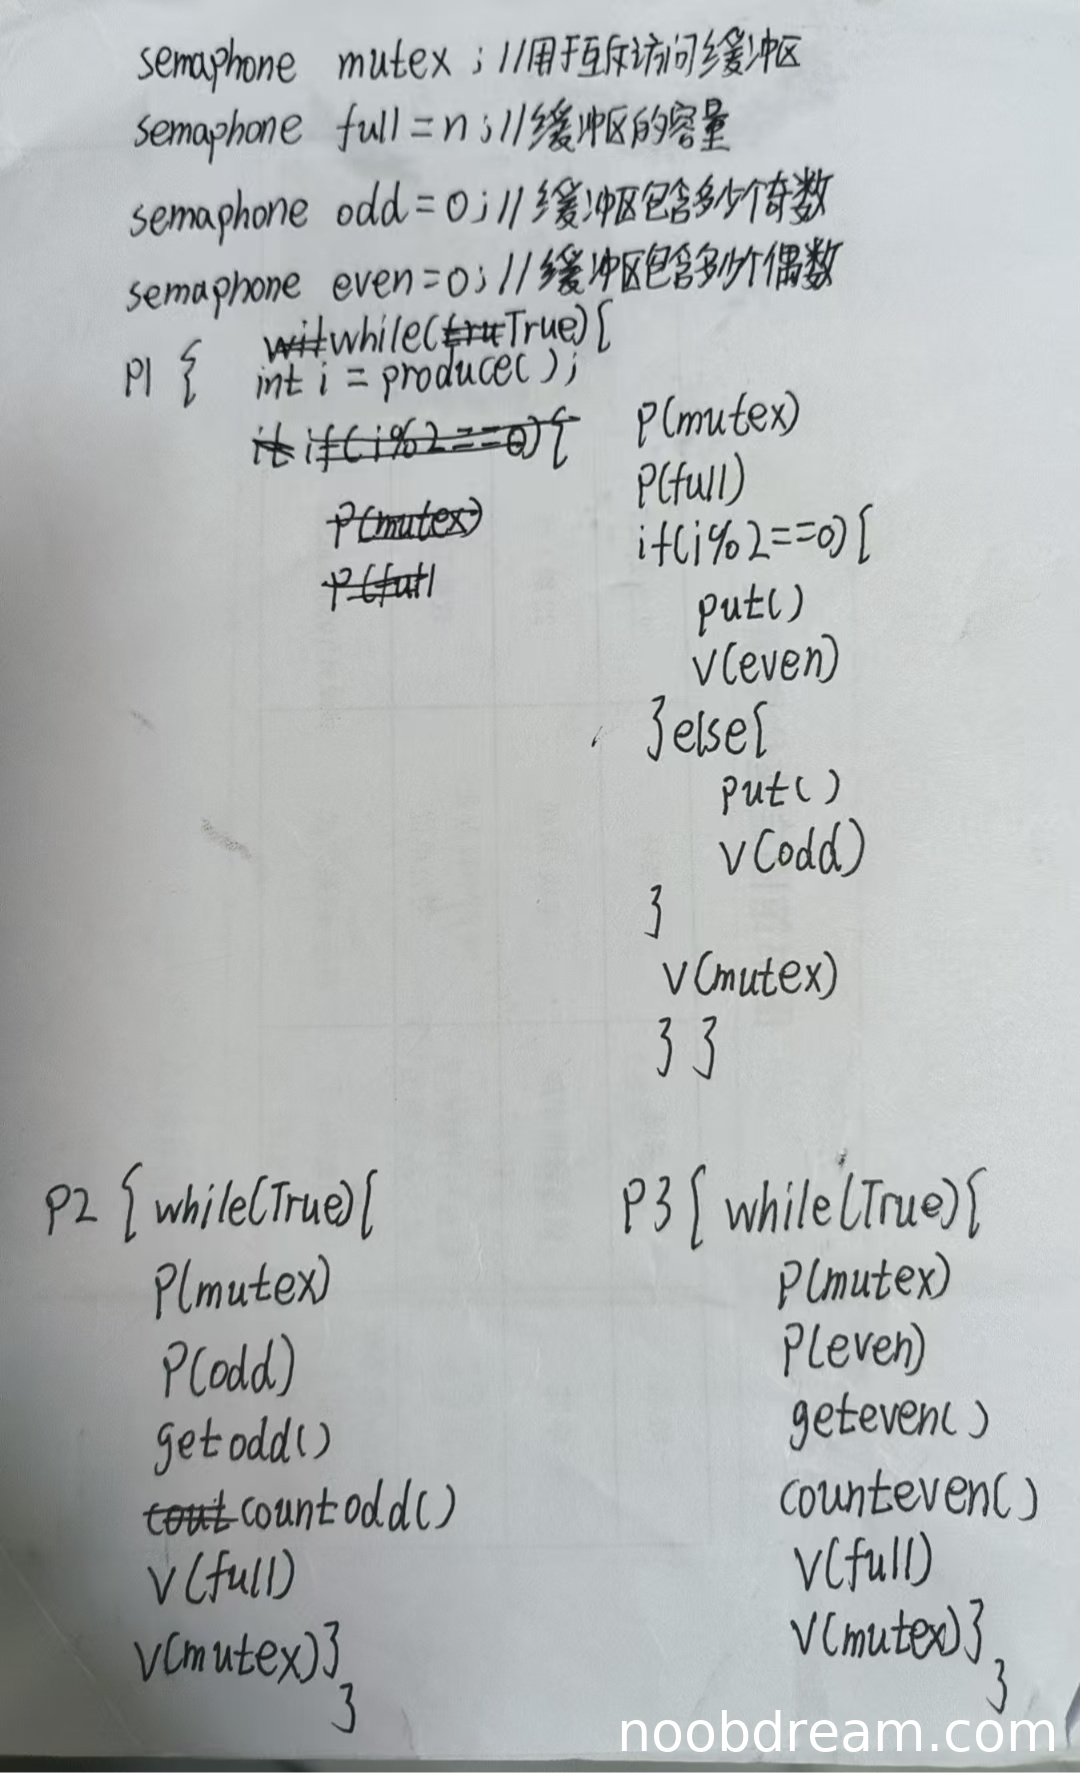 semaphone mutex ; //用于互斥访问缓冲区
semaphone full = n ; //缓冲区的容量
semaphone odd = 0 ; // 缓冲区包含多少个奇数
semaphone even = 0 ; // 缓冲区包含多少个偶数
wit while(tru True){
P1 { int i = produce( ) ;
it if(i%2==0){
P(mutex)
P(full
P(mutex)
P(full)
if(i%2==0){
put()
V(even)
}else{
put()
V(odd)
}
V(mutex)
} }
P2 { while(True){
P(mutex)
P(odd)
getodd()
cout countodd()
V(full)
V(mutex)}
}
P3 { while(True){
P(mutex)
P(even)
geteven()
counteven()
V(full)
V(mutex)}
}
noobdream.com